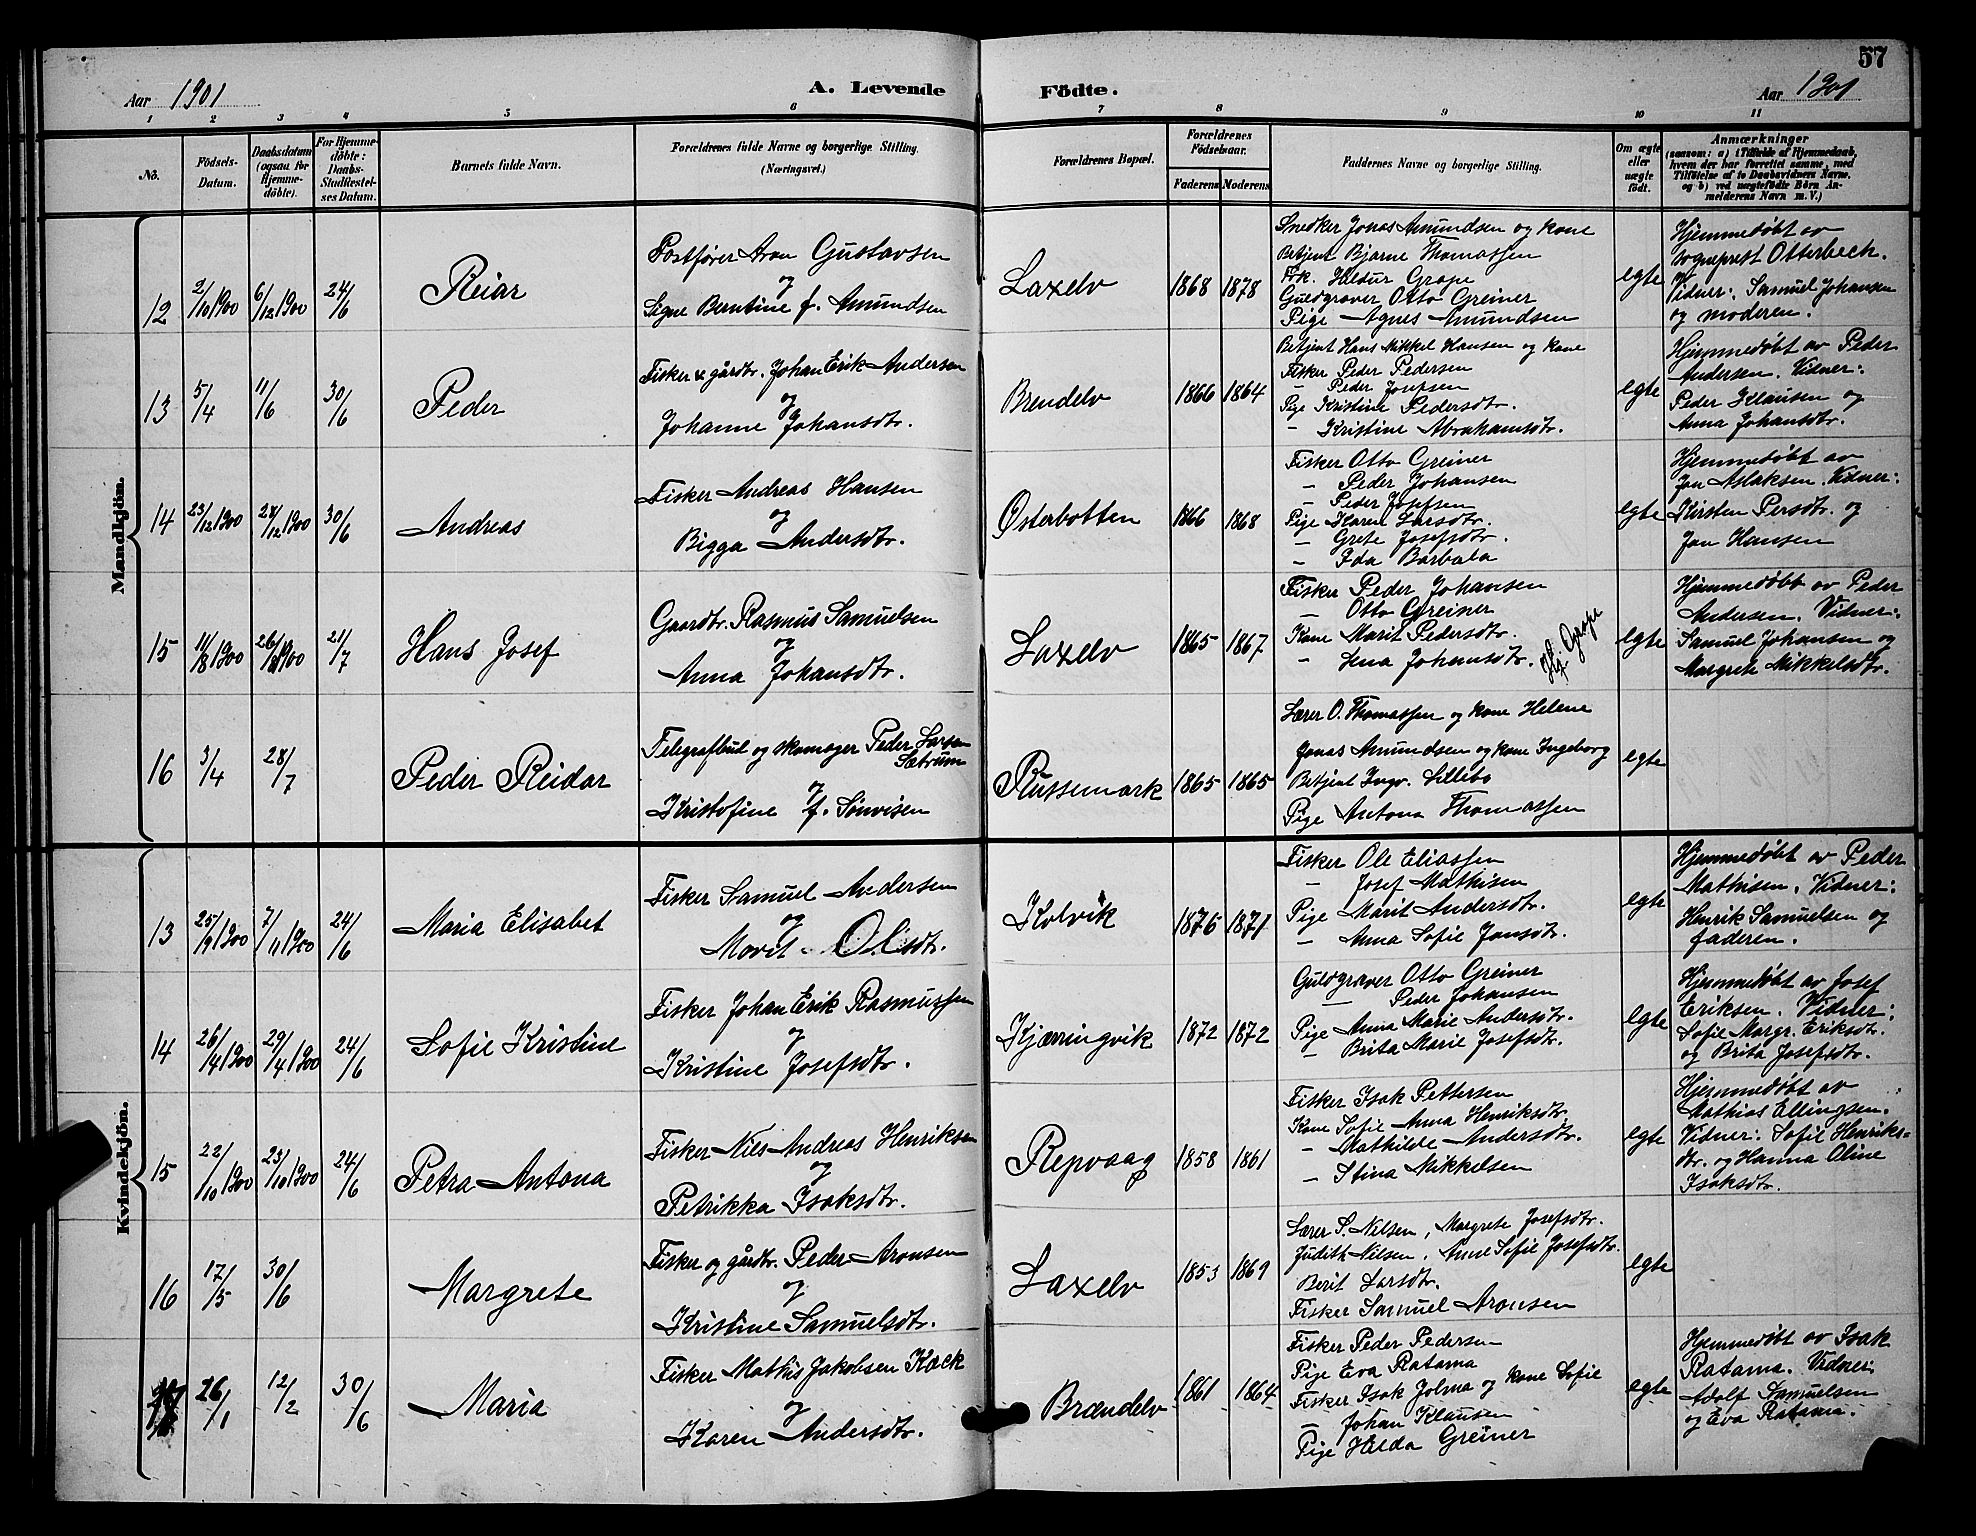 57
Aar 1901
A. Levende Födte.
Aar 1901
1 2 3 4 5 6 7 8 9 10 11
No.
Födsels-Datum.
Daabsdatum (ogsaa for Hjemme-döbte).
For Hjemme-döbte: Daabs-Stadfæstel-ses Datum.
Barnets fulde Navn.
Forældrenes fulde Navne og borgerlige Stilling. (Næringsvei.)
Forældrenes Bopæl.
Forældrenes Födselsaar.
Faderens Moderens
Faddernes Navne og borgerlige Stilling.
Om ægte eller uægte födt.
Anmærkninger
(saasom: a) i Tilfælde af Hjemmedaab, hvem der har forrettet samme, med Tilföielse af to Daabsvidners Navne, og b) ved uægtefödte Börn Anmelderens Navn m. V.)
Mandkjön.
12
2/10 1900
6/12 1900
24/6
Reiar
Postfører Aron Gustavsen
og
Signe Berntine f. Amundsen
Laxelv
1868 1878
Snedker Jonas Amundsen og kone
Betjent Bjarne Thomassen
Frk. Hildur Grape
Guldgraver Otto Greiner
Pige Agnes Amundsen
egte
Hjemmedøbt av
sogneprest Otterbech.
Vidner: Samuel Johansen
og moderen.
13
5/4
11/6
30/6
Peder
Fisker & gårdtr. Johan Erik Andersen
og
Johanne Johansdtr.
Brendelv
1866 1864
Betjent Hans Mikkel Hansen og kone
Fisker Peder Pedersen
— Peder Josefsen
Pige Kristine Pedersdtr.
— Kristine Abrahamsdtr.
egte
Hjemmedøbt av Peder
Andersen. Vidner:
Peder Klausen og
Anna Johansdtr.
14
23/12 1900
24/12 1900
30/6
Andreas
Fisker Andreas Hansen
og
Bigga Andersdtr.
Østerbotten
1866 1868
Fisker Otto Greiner
— Peder Johansen
— Peder Josefsen
Pige Karen Larsdtr.
— Grete Josefsdtr.
— Ida Barbala
egte
Hjemmedøbt av
Jon Aslaksen. Vidner:
Kirsten Persdtr. og
Jon Hansen
15
11/8 1900
26/8 1900
21/7
Hans Josef
Gaardtr. Rasmus Samuelsen
og
Anna Johansdtr.
Laxelv
1865 1867
Fisker Peder Johansen
— Otto Greiner
Kone Marit Pedersdtr.
— Lena Johansdtr.
Hj. Grape
egte
Hjemmedøbt av Peder
Andersen. Vidner:
Samuel Johansen og
Margrete Mikkelsdtr.
16
3/4
28/7
Peder Reidar
Telegrafbud og skomager Peder Larsen
Sætrum
og
Kristofine f. Sønvisen
Russemark
1865 1865
Lærer O. Thomassen og kone Helene
Jonas Amundsen og kone Ingeborg
Betjent Ingv. Lillebo
Pige Antona Thomassen
egte
Kvindekjön.
13
25/9 1900
7/11 1900
24/6
Maria Elisabet
Fisker Samuel Andersen
og
Marit Olsdtr.
Kolvik
1876 1871
Fisker Ole Eliassen
— Josef Mathisen
Pige Marit Andersdtr.
— Anna Sofie Jonsdtr.
egte
Hjemmedøbt av Peder
Mathisen. Vidner:
Henrik Samuelsen og
faderen.
14
26/4 1900
29/4 1900
24/6
Sofie Kristine
Fisker Johan Erik Rasmussen
og
Kristine Josefsdtr.
Kjærringvik
1872 1872
Guldgraver Otto Greiner
— Peder Johansen
Pige Anna Marie Andersdtr.
— Brita Marie Josefsdtr.
egte
Hjemmedøbt av Josef
Eriksen. Vidner:
Sofie Margr. Eriksdtr.
og Brita Josefsdtr.
15
22/10 1900
23/10 1900
24/6
Petra Antona
Fisker Nils Andreas Henriksen
og
Petrikka Isaksdtr.
Repvaag
1858 1861
Fisker Isak Pettersen
Kone Sofie Anna Henriksdtr.
— Mathilde Andersdtr.
— Stina Mikkelsen
egte
Hjemmedøbt av
Mathias Ellingsen.
Vidner: Sofie Henriks=
dtr. og Hanna Oline
Isaksdtr.
16
17/5
30/6
Margrete
Fisker og gårdtr. Peder Aronsen
og
Kristine Samuelsdtr.
Laxelv
1853 1869
Lærer S. Nilsen, Margrete Josefsdtr.
Judith Nilsen, Anne Sofie Josefsdtr.
Berit Larsdtr.
Fisker Samuel Aronsen
egte
17
26/1
12/2
30/6
Maria
Fisker Mathis Jakobsen Kæck
og
Karen Andersdtr.
Brændelv
1861 1864
Fisker Peder Pedersen
Pige Eva Ratama
Fisker Isak Jolma og kone Sofie
— Johan Klausen
Pige Hilda Greiner
egte
Hjemmedøbt av Isak
Ratama. Vidner:
Adolf Samuelsen
og Eva Ratama.